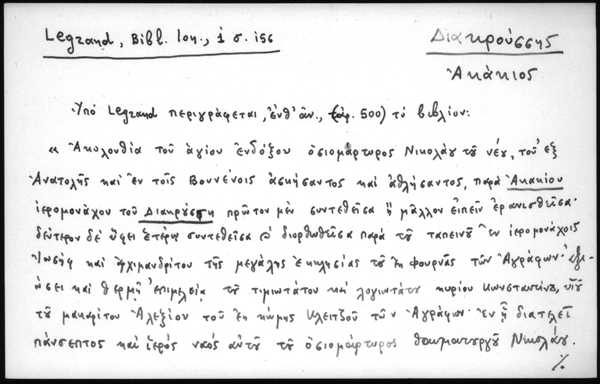 Legrand, Bibl. Ion., 1 σ. 156
Διακρούσσης
Ἀκάκιος
Ὑπὸ Legrand περιγράφεται, ἔνθ' ἀν., (ἀρ. 500) τὸ βιβλίον:
« Ἀκολουθία τοῦ ἁγίου ἐνδόξου ὁσιομάρτυρος Νικολάου τοῦ νέου, τοῦ ἐξ
Ἀνατολῆς καὶ ἐν τοῖς Βουνένοις ἀσκήσαντος καὶ ἀθλήσαντος, παρὰ Ἀκακίου
ἱερομονάχου τοῦ Διακρούση πρῶτον μὲν συντεθεῖσα ἢ μᾶλλον εἰπεῖν ἐρανισθεῖσα·
δεύτερον δὲ ὕφει ἑτέρῳ συντεθεῖσα καὶ διορθωθεῖσα παρὰ τοῦ ταπεινοῦ ἐν ἱερομονάχοις
Ἰωσὴφ καὶ ἀρχιμανδρίτου τῆς μεγάλης ἐκκλησίας τοῦ ἐκ Φουρνᾶς τῶν Ἀγράφων· ἀξι-
ώσει καὶ θερμῇ ἐπιμελείᾳ τοῦ τιμιωτάτου καὶ λογιωτάτου κυρίου Κωνσταντίνου, υἱοῦ
τοῦ μακαρίτου Ἀλεξίου τοῦ ἐκ κώμης Κλειτζοῦ τῶν Ἀγράφων· ἐν ᾗ διατελεῖ
πάνσεπτος καὶ ἱερὸς ναὸς αὐτοῦ τοῦ ὁσιομάρτυρος θαυματουργοῦ Νικολάου.
./.